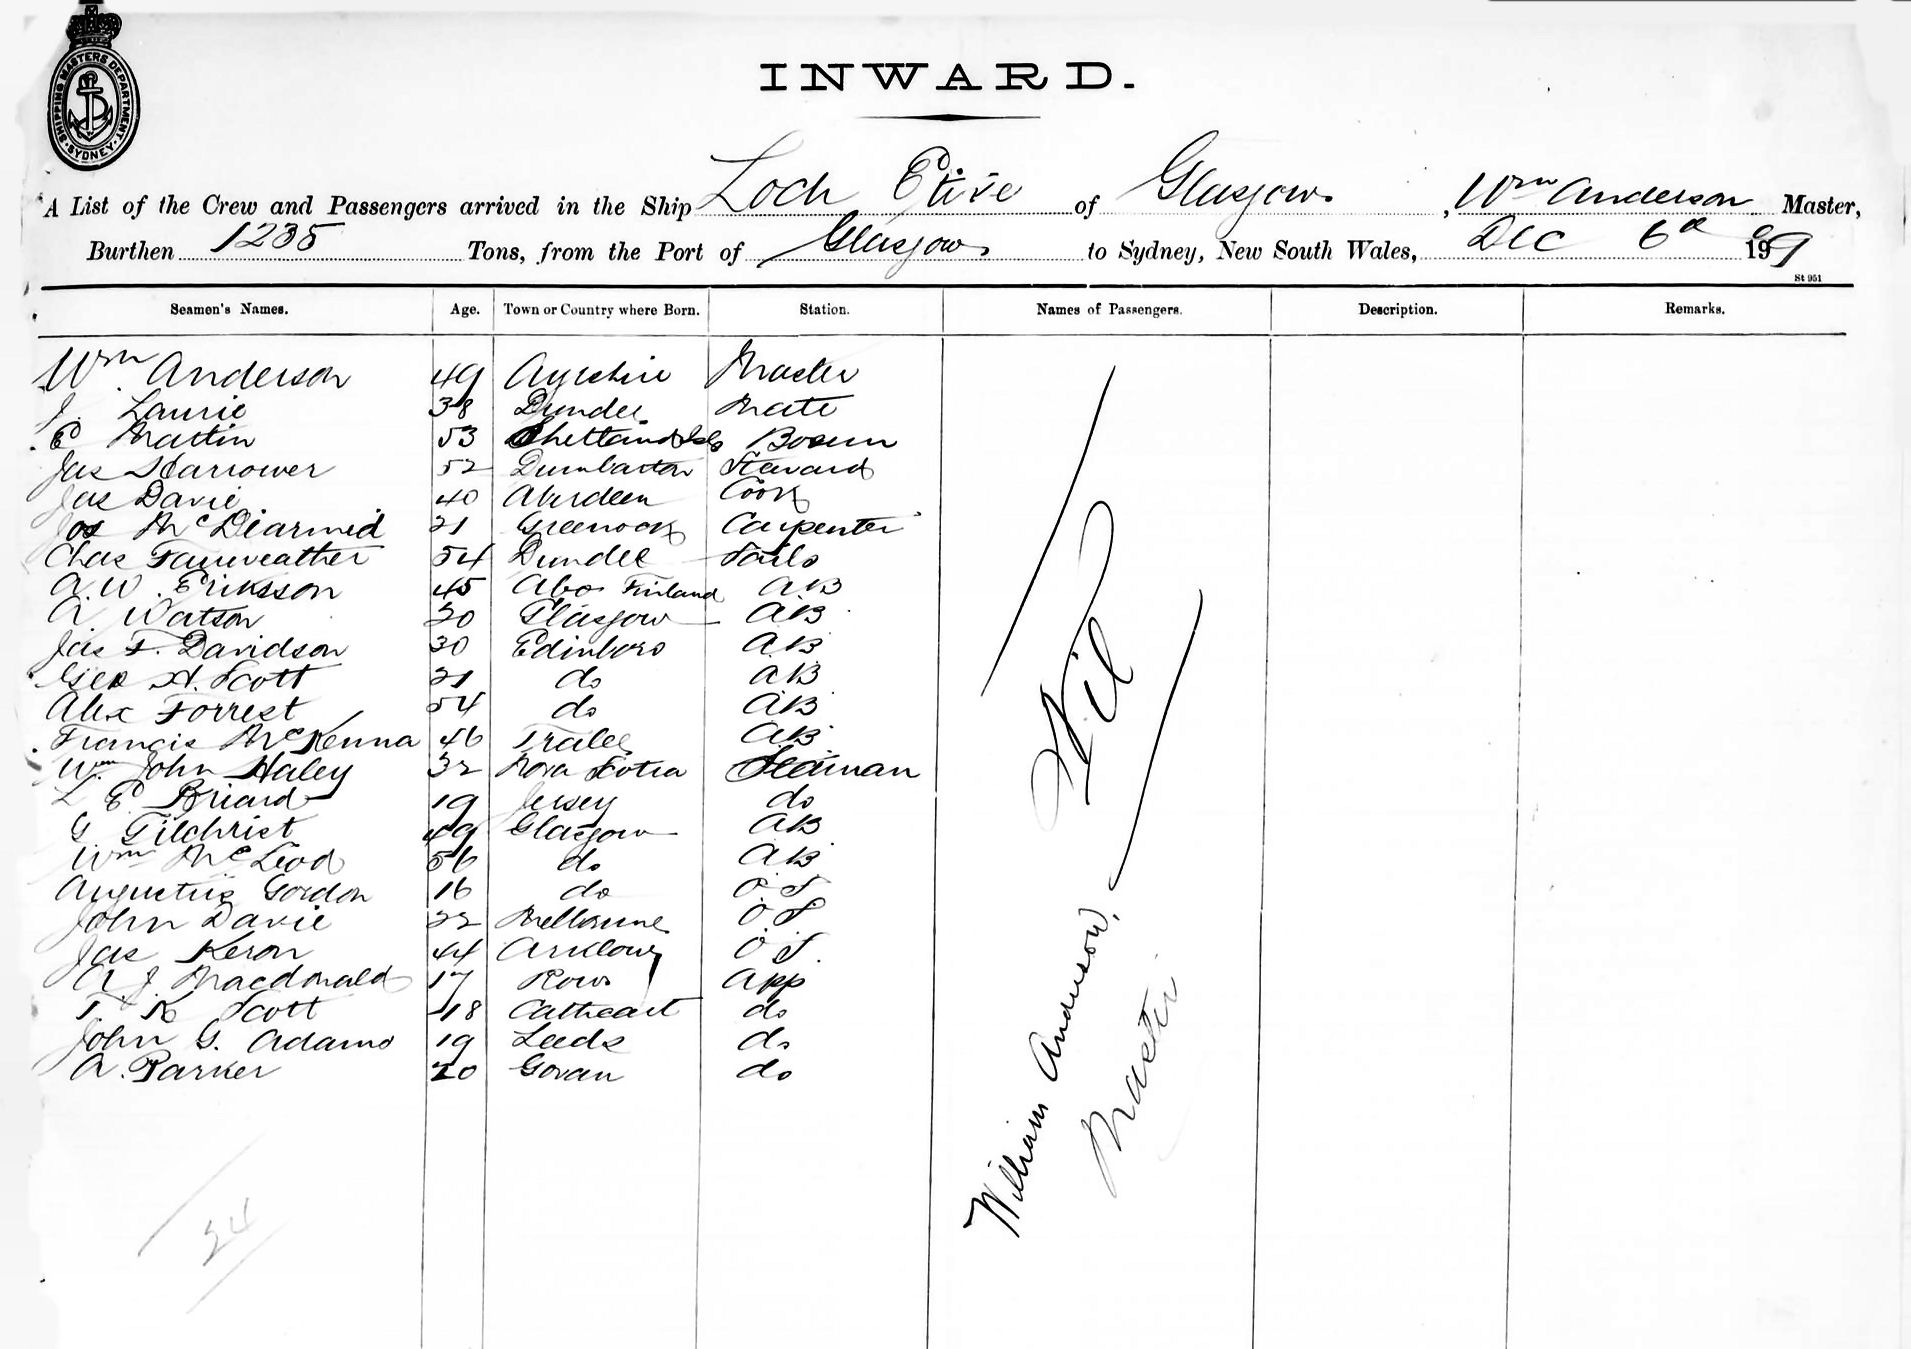 SHIPPING MASTERS DEPARTMENT · SYDNEY ·
INWARD.
A List of the Crew and Passengers arrived in the Ship Loch Etive of Glasgow, Wm Anderson Master,
Burthen 1235 Tons, from the Port of Glasgow to Sydney, New South Wales, Dec 6th 1909
St 951
Seamen's Names. Age. Town or Country where Born. Station. Names of Passengers. Description. Remarks.
Wm Anderson 49 Ayrshire Master
J. Laurie 38 Dundee Mate
E Martin 53 Shetland Isls Bosun
Jas Harrower 52 Dumbarton Steward
Jas Davie 40 Aberdeen Cook
Jos McDiarmid 21 Greenock Carpenter
Chas Fairweather 54 Dundee Sails
A.W. Eriksson 45 Abos Finland AB
A. Watson 20 Glasgow AB
Jas F. Davidson 30 Edinboro AB
Geo H. Scott 21 do AB
Alex Forrest 54 do AB
Francis McKenna 46 Tralee AB
Wm John Haley 32 Nova Scotia Seaman
L E Briard 19 Jersey do
G Gilchrist 49 Glasgow AB
Wm McLeod 56 do AB
Augustus Gordon 16 do O.S
John Davie 22 Melbourne O.S
Jas Keron 44 Arklow O.S.
A J. Macdonald 17 Row App
T. K Scott 18 Cathcart do
John G. Adams 19 Leeds do
A. Parker 20 Govan do
Nil
William Anderson,
Master
24